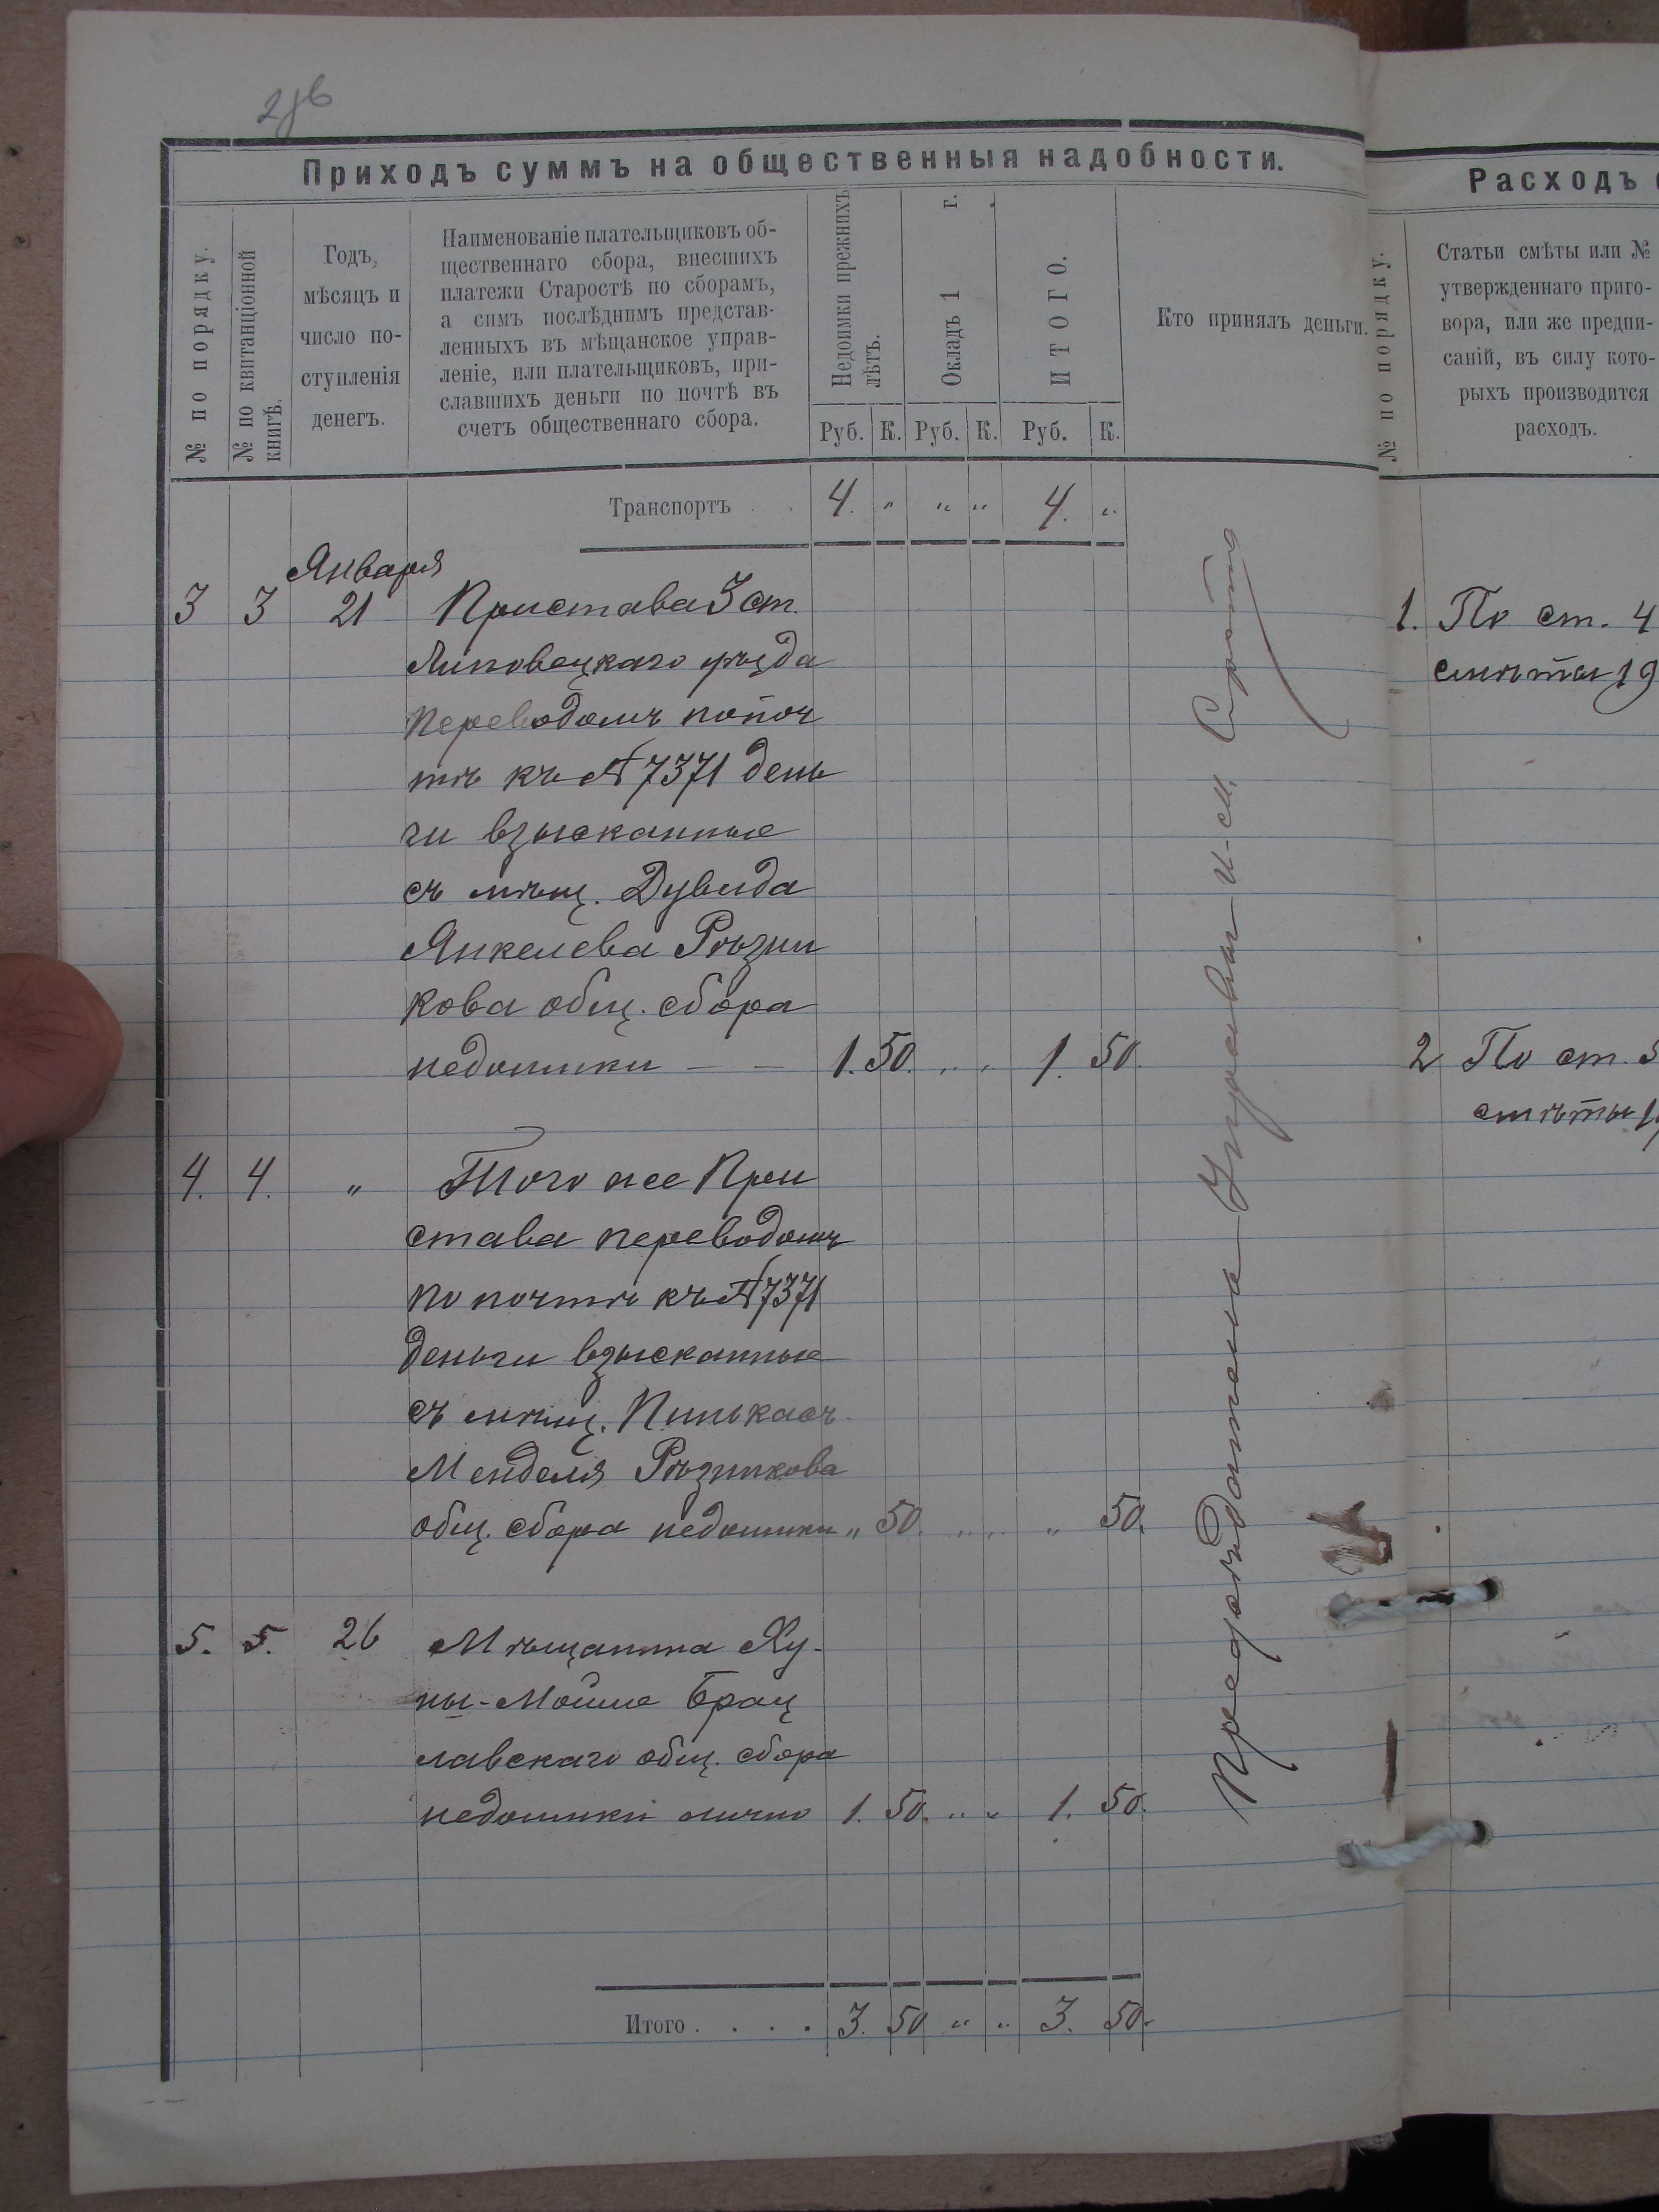 Приходъ суммъ на общественныя надобности.
№ по порядку.
№ по квитанціонной
книгѣ.
Годъ,
мѣсяцъ и
число по-
ступленія
денегъ.
Наименованіе плательщиковъ об-
щественнаго сбора, внесшихъ
платежи Старостѣ по сборамъ,
а симъ послѣднимъ представ-
ленныхъ въ мѣщанское управ-
леніе, или плательщиковъ, при-
славшихъ деньги по почтѣ въ
счетъ общественнаго сбора.
Недоимки прежнихъ
лѣтъ.
Окладъ 1 г.
ИТОГО.
Кто принялъ деньги.
Руб. К. Руб. К. Руб. К.
Транспортъ . . 4. " " " 4. "
Января
3 3 21 Пристава 3 ст.
Липовецкаго уѣзда
переводомъ по поч
тѣ къ № 7371 день
ги взысканные
съ мѣщ. Дувида
Янкелева Рѣзни
кова общ. сбора
недоимки — — 1. 50. " " 1. 50.
4. 4. " Того же При
става переводомъ
по почтѣ къ № 7371
деньги взысканные
съ мѣщ. Пинькасъ
Менделя Рѣзникова
общ. сбора недоимки " 50. " " " 50.
5. 5. 26 Мѣщанина Ху-
ны-Мошко Брац
лавскаго общ. сбора
недоимки лично 1. 50. " " 1. 50.
Итого . . . . 3. 50 " " 3. 50.
Расходъ
№ по порядку.
Статьи смѣты или №
утвержденнаго приго-
вора, или же предпи-
саній, въ силу кото-
рыхъ производится
расходъ.
1. По ст. 4
смѣты 19
2 По ст.
смѣты